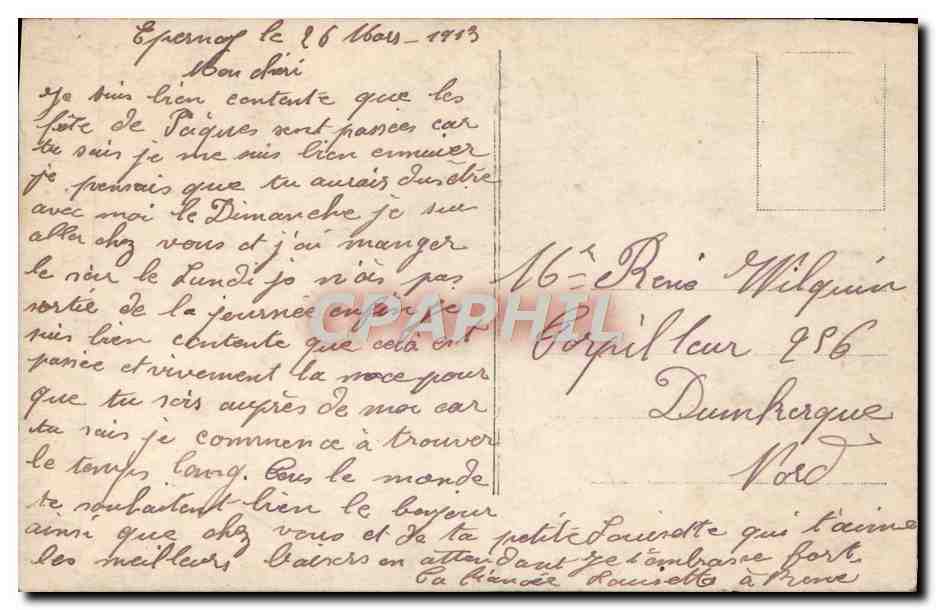 Epernay le 26 Mars - 1913
Mon chéri
Je suis bien contente que les
fête de Pâques sont passées car
tu sais je me suis bien ennuier
je pensais que tu aurais dus être
avec moi le Dimanche je suis
aller chez vous et j'ai manger
le soir le Lundi je n'ais pas
sortie de la journée enfin je
suis bien contente que celà est
passée et vivement la noce pour
que tu sois auprès de moi car
tu sais je commence à trouver
le temps long. Tous le monde
te souhaitent bien le bonjour
ainsi que chez vous et de ta petite Louisette qui t'aime
les meilleurs baisers en attendant je t'embrasse fort
ta fiancée Louisette à René
Mr René Wilquin
Torpilleur 256
Dunkerque
Nord
CPAPHIL